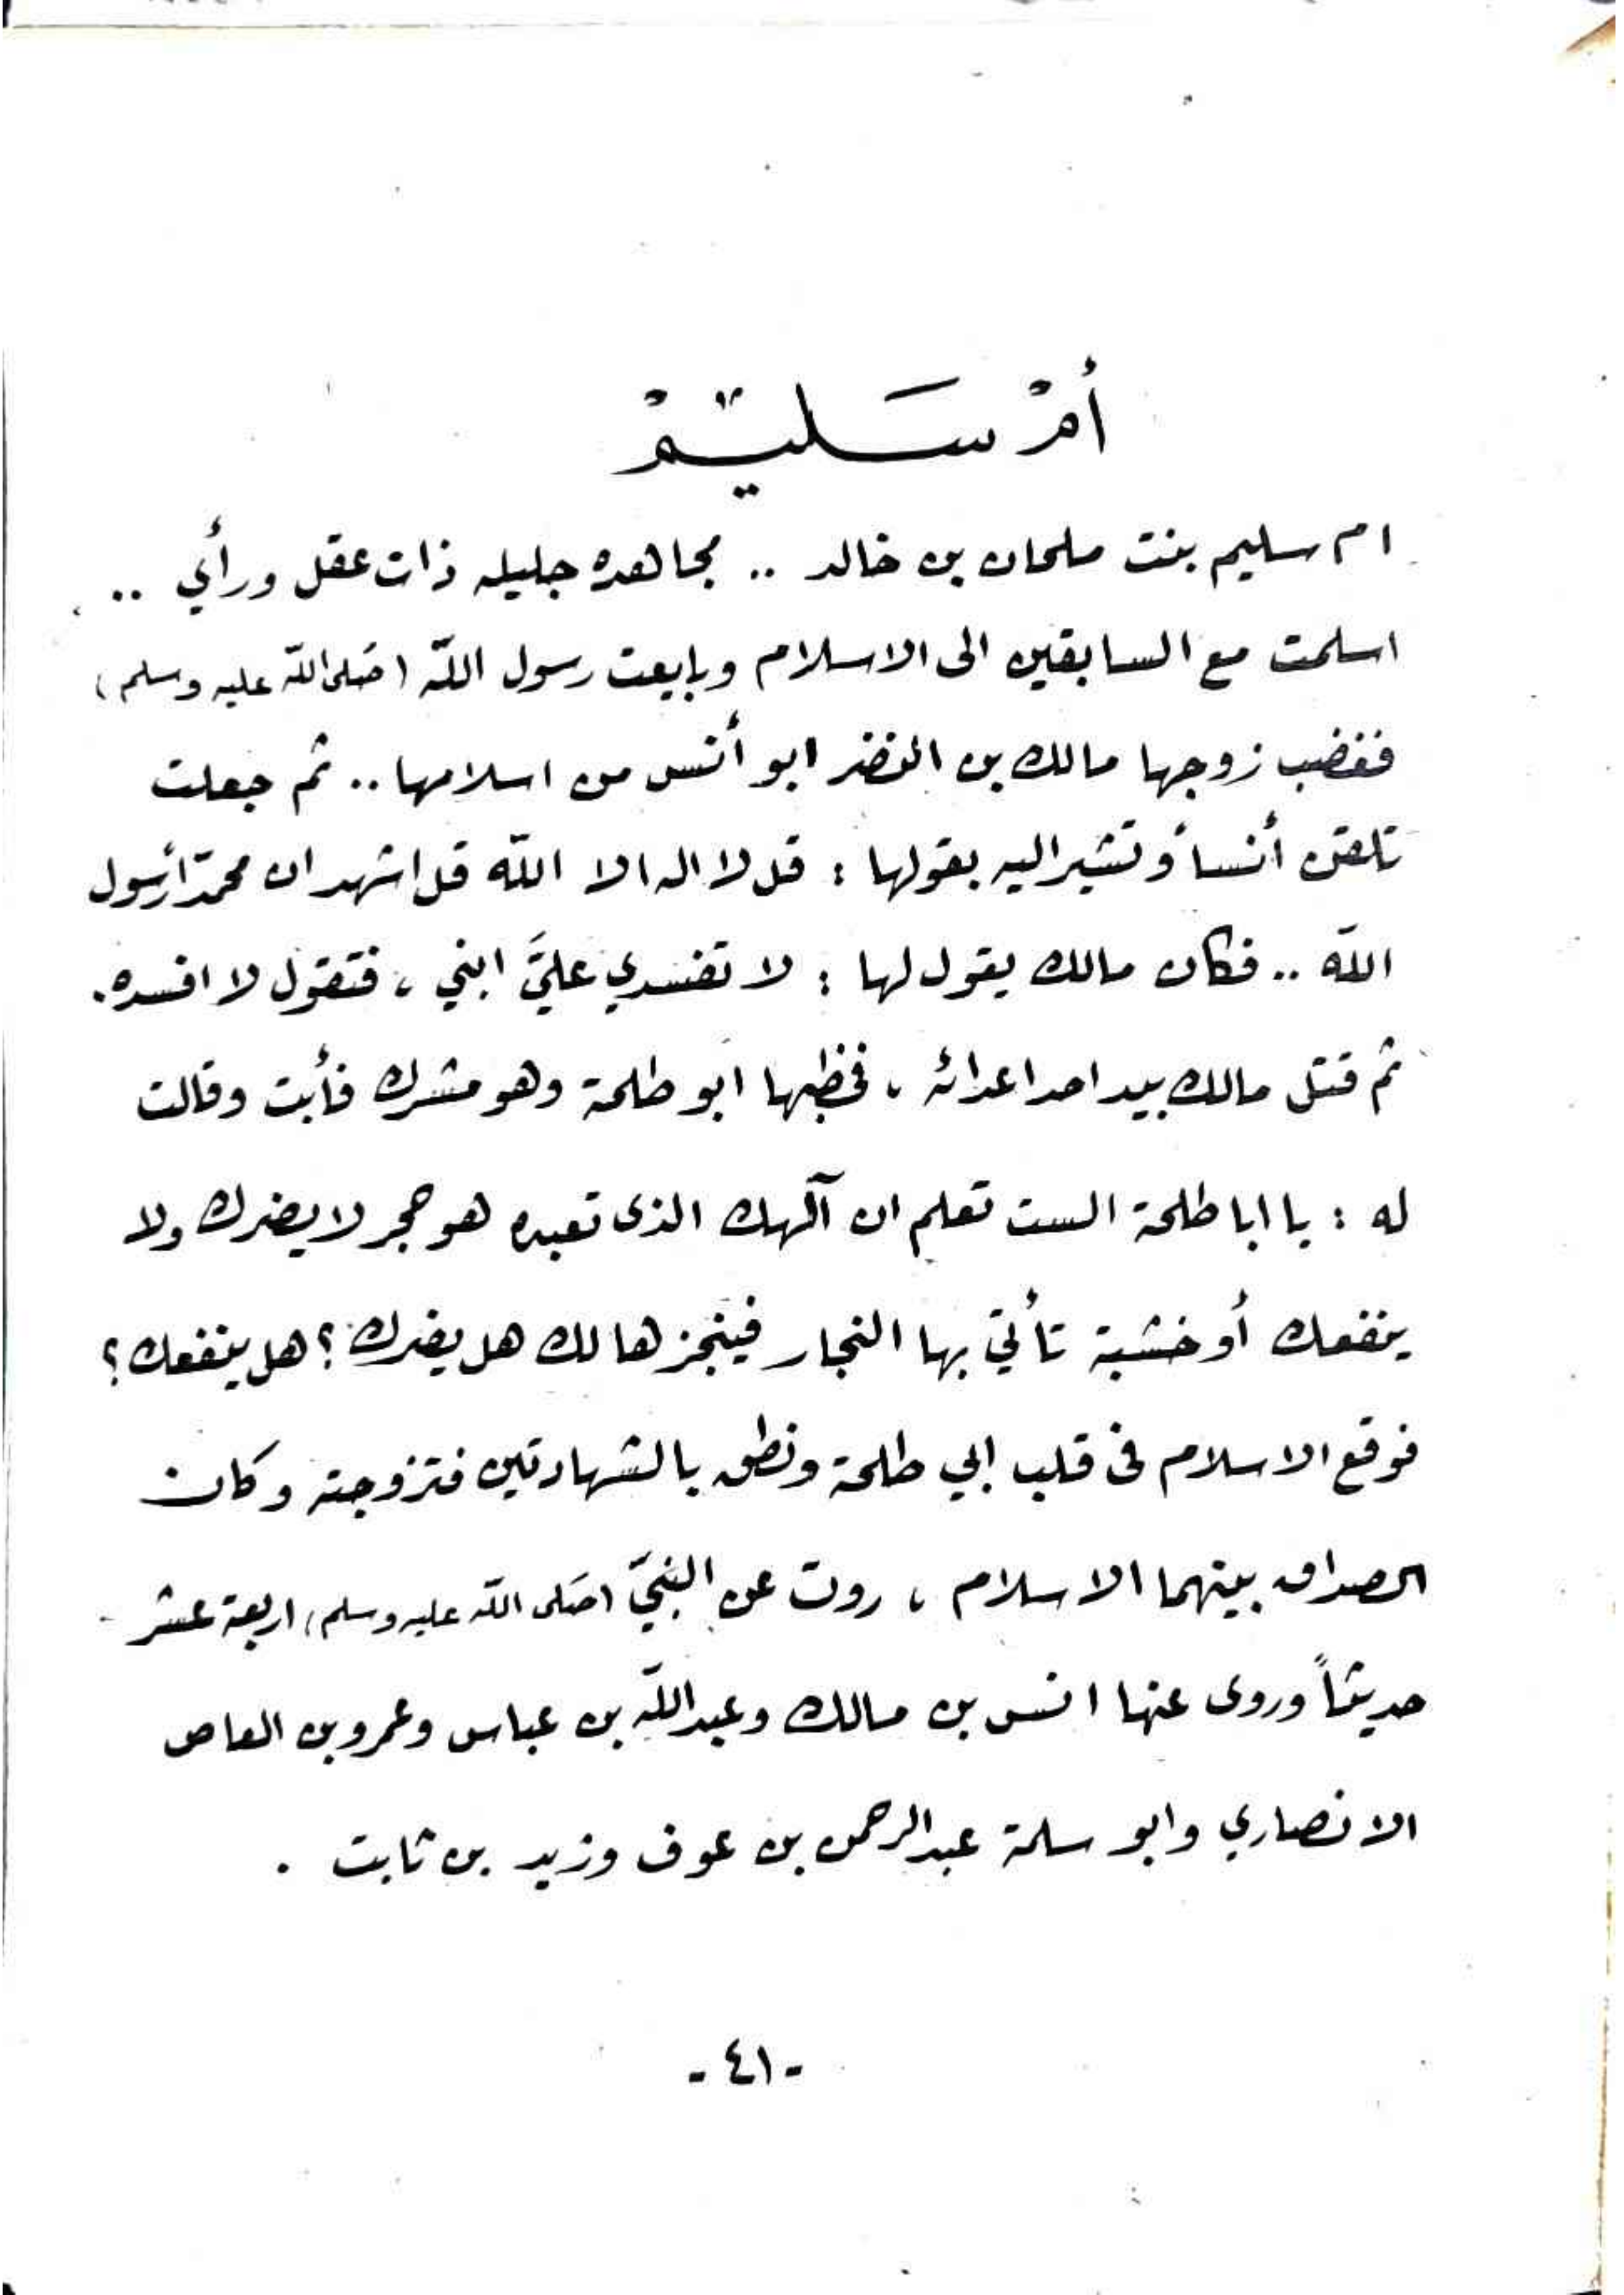 أمْ سَليّمْ
ام سليم بنت ملحان بن خالد .. مجاهده جليله ذات عقل ورأي ..
اسلمت مع السابقين الى الاسلام وبايعت رسول اللّه (صَلى اللّه عليه وسلم)
فغضب زوجها مالك بن النضر ابو أنس من اسلامها .. ثم جعلت
تلقن أنسأ وتشير اليه بقولها : قل لا اله الا اللّه قل اشهد ان محمّدأ رسول
اللّه .. فكان مالك يقول لها : لا تفسدي عليَّ ابني ، فتقول لا افسده .
ثم قتل مالك بيد احد اعدائه ، فخطبها ابو طلحة وهو مشرك فأبت وقالت
له : يا ابا طلحة الست تعلم ان آلهك الذى تعبده هو حجر لا يضرك ولا
ينفعك أو خشبة تأتي بها النجار فينجزها لك هل يضرك ؟ هل ينفعك ؟
فوقع الاسلام فى قلب ابي طلحة ونطق بالشهادتين فتزوجته وكان
الصداق بينهما الاسلام ، روت عن النبيّ (صَلى اللّه عليه وسلم) اربعة عشر
حديثاً وروى عنها انس بن مالك وعبداللّه بن عباس وعمرو بن العاص
الانصاري وابو سلمة عبدالرحمن بن عوف وزيد بن ثابت .
- ٤١ -